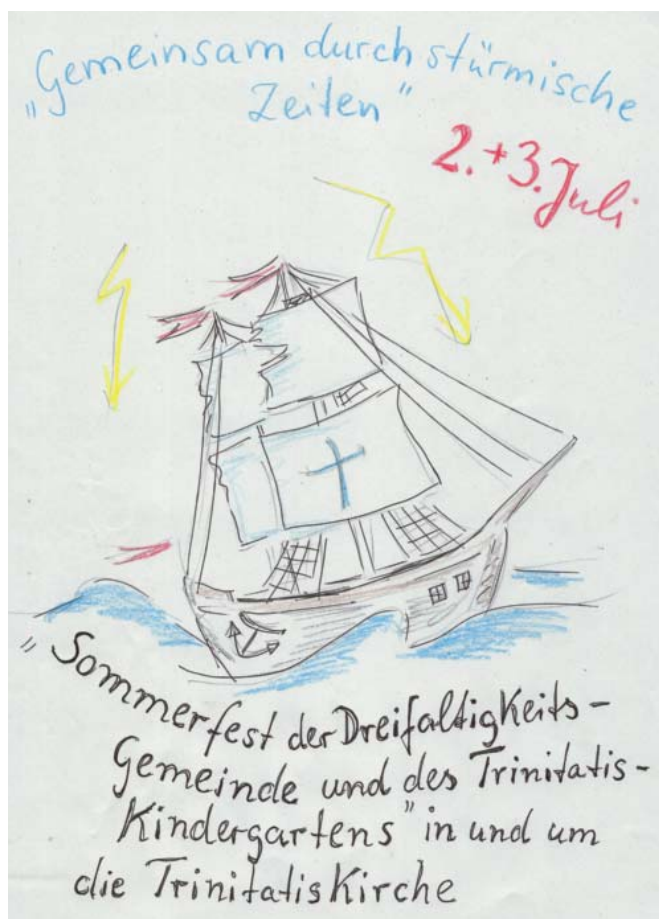 „Gemeinsam durch stürmische
Zeiten"
2.+3. Juli
„Sommerfest der Dreifaltigkeits-
Gemeinde und des Trinitatis-
Kindergartens" in und um
die Trinitatiskirche